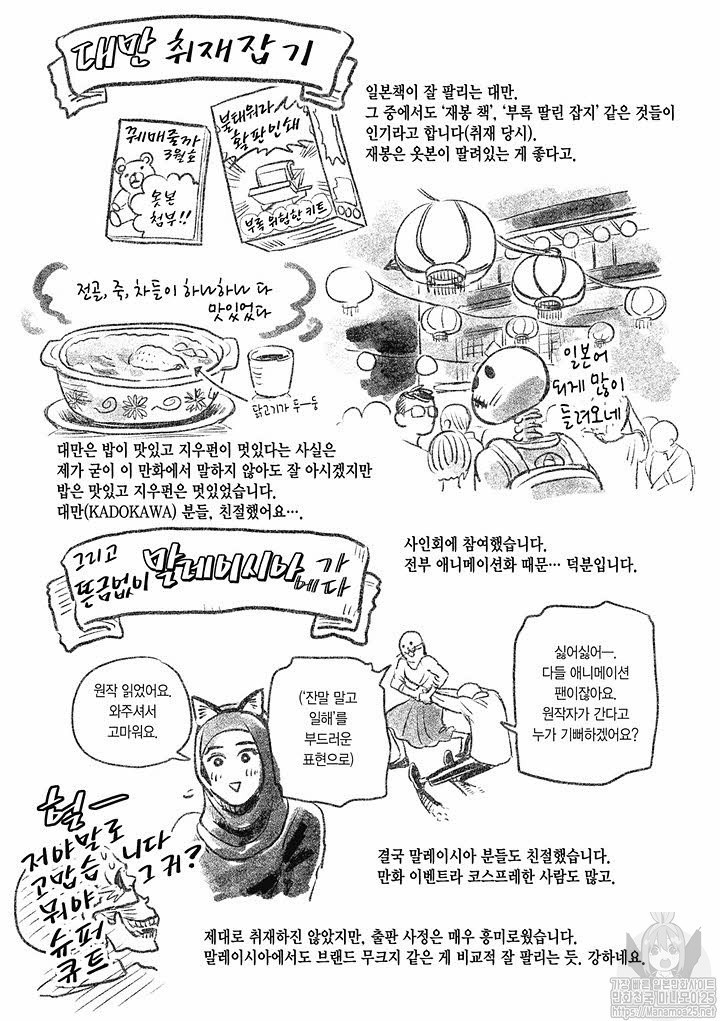 대만 취재잡기
일본책이 잘 팔리는 대만.
그 중에서도 '재봉 책', '부록 딸린 잡지' 같은 것들이
인기라고 합니다(취재 당시).
재봉은 옷본이 딸려있는 게 좋다고.
꿰매줄까
3월호
옷본
첨부!!
불태워라
활판인쇄
부록 위험한 키트
전골, 죽, 차들이 하나하나 다
맛있었다
닭고기가 두-둥
일본어
되게 많이
들려오네
대만은 밥이 맛있고 지우펀이 멋있다는 사실은
제가 굳이 이 만화에서 말하지 않아도 잘 아시겠지만
밥은 맛있고 지우펀은 멋있었습니다.
대만(KADOKAWA) 분들, 친절했어요….
그리고
뜬금없이 말레이시아에 가다
사인회에 참여했습니다.
전부 애니메이션화 때문… 덕분입니다.
싫어싫어—.
다들 애니메이션
팬이잖아요.
원작자가 간다고
누가 기뻐하겠어요?
('잔말 말고
일해'를
부드러운
표현으로)
원작 읽었어요.
와주셔서
고마워요.
헐—
저야말로
고맙습니다
뭐야 그 귀?
슈퍼
큐트
결국 말레이시아 분들도 친절했습니다.
만화 이벤트라 코스프레한 사람도 많고.
제대로 취재하진 않았지만, 출판 사정은 매우 흥미로웠습니다.
말레이시아에서도 브랜드 무크지 같은 게 비교적 잘 팔리는 듯. 강하네요.
가장 빠른 일본만화사이트
만화천국 마나모아25
https://Manamoa25.net